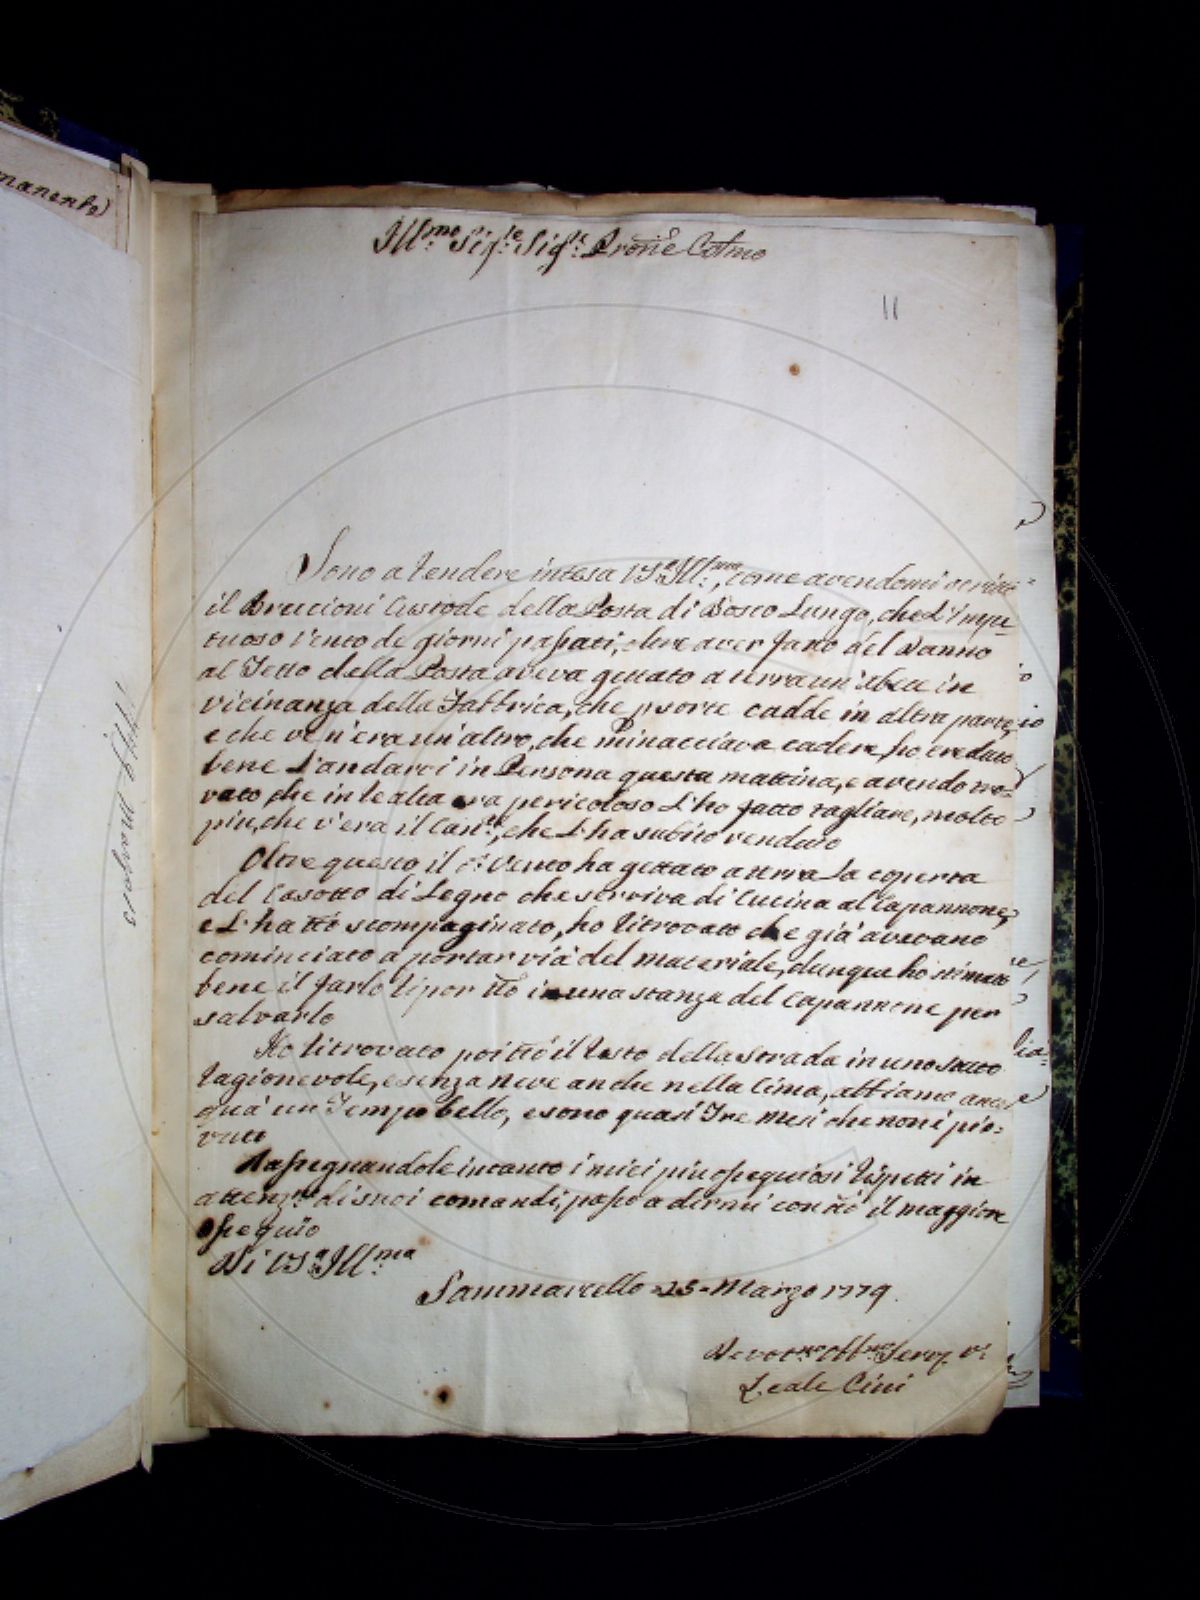 manente)
Ill.mo Sig.re Sig.re Prone Colmo
11
Sono a rendere intesa VS.a Ill.ma, come avendomi scritto
il Bruccioni Custode della Posta di Bosco Lungo, che l'Impe=
tuoso vento de giorni passati, oltre aver fatto del danno
al Tetto della Posta aveva gettato a terra un' Abete in
vicinanza della Fabbrica, che p sorte cadde in altra parte,
e che ve n'era un'altro, che minacciava cadere, ho creduto
bene l'andarvi in Persona questa mattina, e avendo tro=
vato che in realtà era pericoloso l'ho fatto tagliare, molto
piu, che v'era il Cant.e, che l'ha subito venduto
Oltre questo il d.o vento ha gettato a terra la coperta
del Casotto di Legno che serviva di Cucina al Capannone,
e l'ha tto scompaginato, ho ritrovato che già avevano
cominciato a portar via del materiale, dunque ho stimato
bene il farlo ripor tto in una stanza del Capannone per
salvarlo
Ho ritrovato poi tto il resto della Strada in uno stato
ragionevole, e senza neve anche nella Cima, abbiamo ancor
quà un Tempo bello, e sono quasi Tre Mesi che non è pio=
vuto
Rassegnandole intanto i miei piu ossequiosi rispetti in
attenz.e di suoi comandi, passo a dirmi con tto il maggiore
ossequio
Di VS.a Ill.ma
Sammarcello 25 Marzo 1779
Devot.mo Obb.mo Serv. v.
Leale Cini